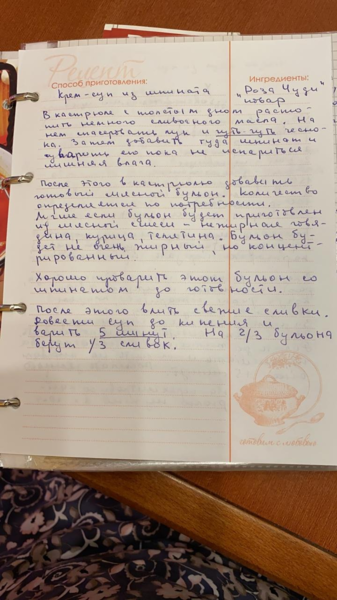 Рецепт
Способ приготовления:
Ингредиенты:
Крем-суп из шпината
"Роза Чуди"
повар
В кастрюле с толстым дном расто-
пить немного сливочного масла. На
нём спассеровать лук и чуть-чуть чесно-
ка. Затем добавить туда шпинат и
варить его пока не испарится
лишняя влага.
После этого в кастрюлю добавить
готовый мясной бульон. Количество
определяется по потребности.
Лучше если бульон будет приготовлен
из мясной смеси - нежирная говя-
дина, курица, телятина. Бульон бу-
дет не очень жирный, но концент-
рированный.
Хорошо проварить этот бульон со
шпинатом до готовности.
После этого влить свежие сливки.
Довести суп до кипения и
варить 5 минут. На 2/3 бульона
берут 1/3 сливок.
готовим с любовью